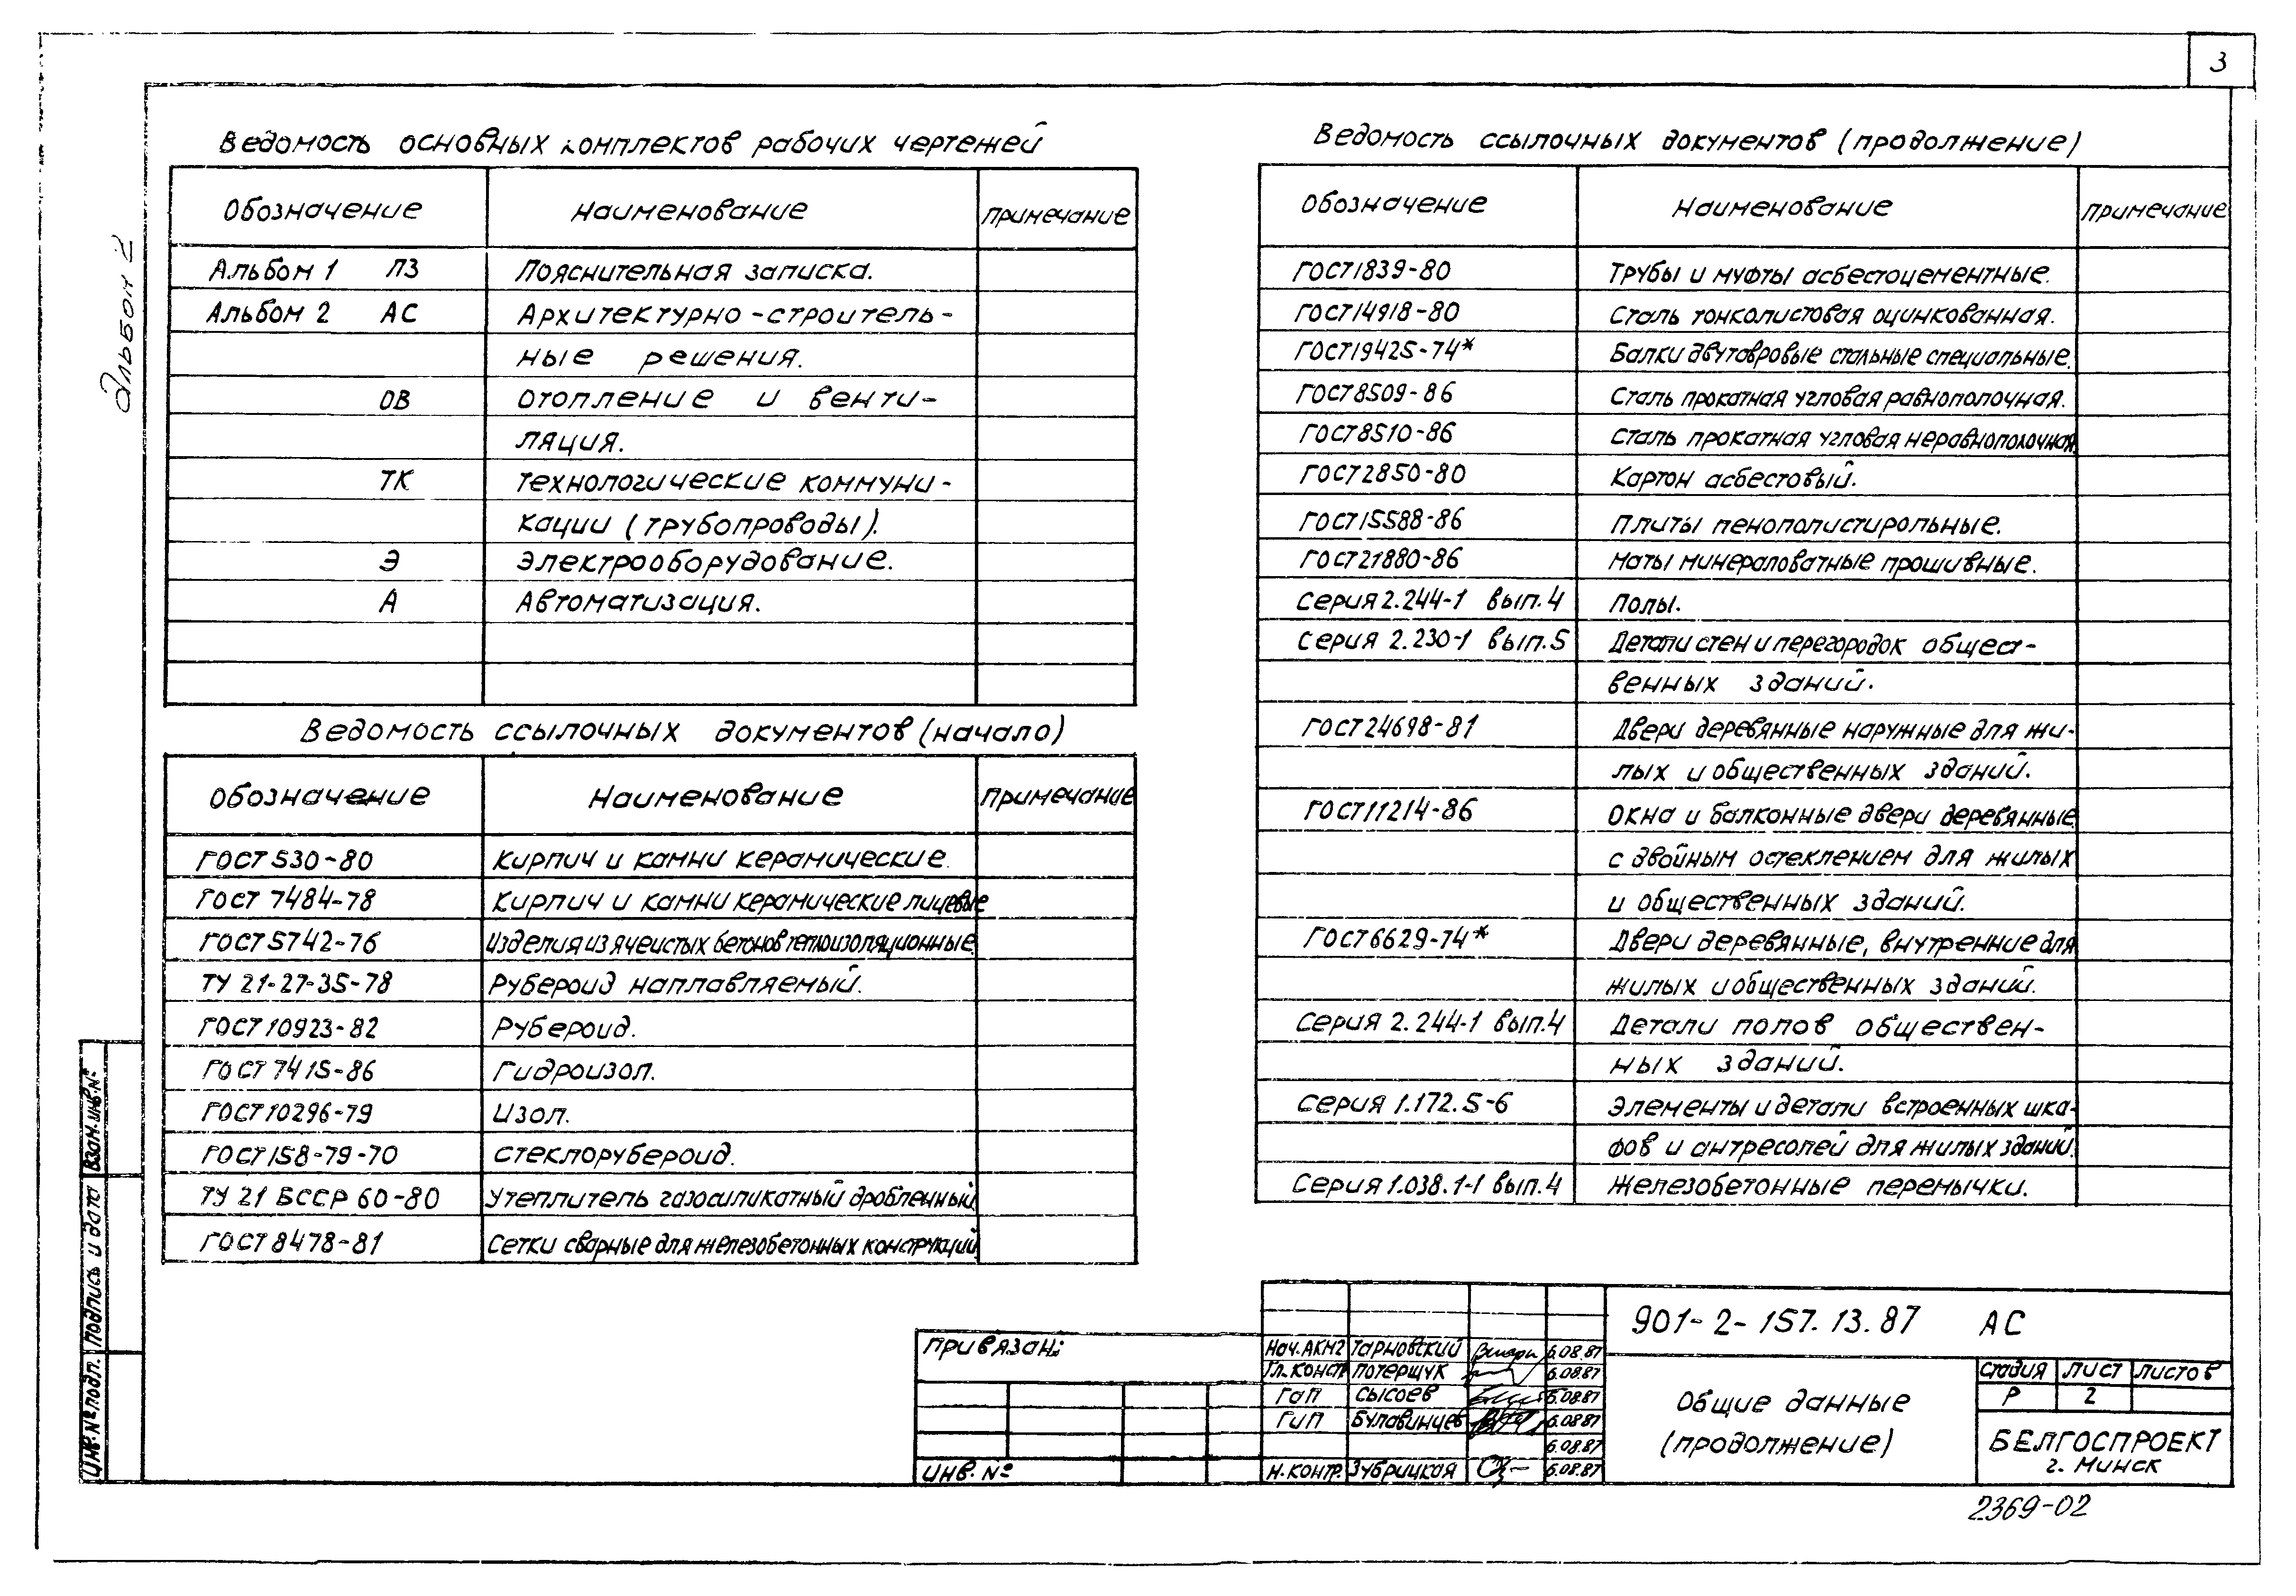 3
Альбом 2
Ведомость основных комплектов рабочих чертежей
Обозначение Наименование Примечание
Альбом 1 ПЗ Пояснительная записка.
Альбом 2 АС Архитектурно-строитель-
ные решения.
ОВ Отопление и венти-
ляция.
ТК Технологические коммуни-
кации (трубопроводы).
Э Электрооборудование.
А Автоматизация.
Ведомость ссылочных документов (начало)
Обозначение Наименование Примечание
ГОСТ 530-80 Кирпич и камни керамические.
ГОСТ 7484-78 Кирпич и камни керамические лицевые
ГОСТ 5742-76 Изделия из ячеистых бетонов теплоизоляционные.
ТУ 21-27-35-78 Рубероид наплавляемый.
ГОСТ 10923-82 Рубероид.
ГОСТ 7415-86 Гидроизол.
ГОСТ 10296-79 Изол.
ГОСТ 158-79-70 Стеклорубероид.
ТУ 21 БССР 60-80 Утеплитель газосиликатный дробленный.
ГОСТ 8478-81 Сетки сварные для железобетонных конструкций
Ведомость ссылочных документов (продолжение)
Обозначение Наименование Примечание
ГОСТ 1839-80 Трубы и муфты асбестоцементные.
ГОСТ 14918-80 Сталь тонколистовая оцинкованная.
ГОСТ 19425-74* Балки двутавровые стальные специальные.
ГОСТ 8509-86 Сталь прокатная угловая равнополочная.
ГОСТ 8510-86 Сталь прокатная угловая неравнополочная.
ГОСТ 2850-80 Картон асбестовый.
ГОСТ 15588-86 Плиты пенополистирольные.
ГОСТ 21880-86 Маты минераловатные прошивные.
Серия 2.244-1 вып.4 Полы.
Серия 2.230-1 вып.5 Детали стен и перегородок общест-
венных зданий.
ГОСТ 24698-81 Двери деревянные наружные для жи-
лых и общественных зданий.
ГОСТ 11214-86 Окна и балконные двери деревянные
с двойным остеклением для жилых
и общественных зданий.
ГОСТ 6629-74* Двери деревянные, внутренние для
жилых и общественных зданий.
Серия 2.244-1 вып.4 Детали полов обществен-
ных зданий.
Серия 1.172.5-6 Элементы и детали встроенных шка-
фов и антресолей для жилых зданий.
Серия 1.038.1-1 вып.4 Железобетонные перемычки.
Взам. инв. №
Подпись и дата
Инв. № подл.
Привязан:
Инв. №
Нач. АКМ2 Тарновский 6.08.87
Гл. конст. Потерщук 6.08.87
ГАП Сысоев 6.08.87
ГИП Булавинцев 6.08.87
6.08.87
Н. контр. Зубрицкая 6.08.87
901-2-157.13.87 АС
Общие данные
(продолжение)
Стадия Лист Листов
Р 2
БЕЛГОСПРОЕКТ
г. Минск
2369-02